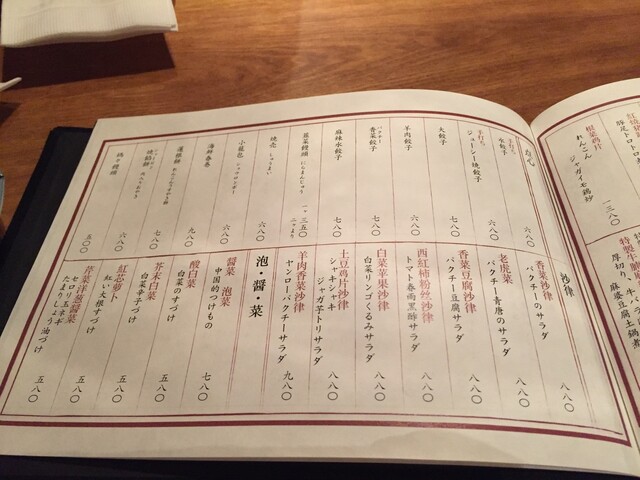 点心
手打ち
水餃子
六八〇
手打ち
ジューシー焼餃子
六八〇
大餃子
七八〇
羊肉餃子
六八〇
パクチー
香菜餃子
七八〇
麻辣水餃子
七八〇
韮菜饅頭 にらまんじゅう
一ヶ 三五〇
二ヶより
焼売 しゅうまい
六八〇
小籠包 ショウロンポー
六八〇
海鮮春巻
六八〇
九八〇
七八〇
六八〇
五〇〇
沙律
香菜沙律
パクチーのサラダ
八八〇
老虎菜
パクチー青唐のサラダ
八八〇
香菜豆腐沙律
パクチー豆腐サラダ
八八〇
西紅柿粉丝沙律
トマト春雨黒酢サラダ
八八〇
白菜苹果沙律
白菜リンゴくるみサラダ
八八〇
土豆鸡片沙律
シャキシャキ
ジャガ芋トリサラダ
八八〇
羊肉香菜沙律
ヤンローパクチーサラダ
九八〇
泡・醤・菜
醤菜 泡菜
中国的つけもの
七八〇
酸白菜
白菜のすづけ
七八〇
芥末白菜
白菜辛子づけ
五八〇
紅芯萝卜
紅い大根すづけ
五八〇
芹菜洋葱醤菜
セロリ玉ネギ
たまりしょう油づけ
五八〇
根菜鸡肉
れんこん
ジャガイモ鶏炒
一三八〇
厚切り
麻婆豆腐土鍋煮